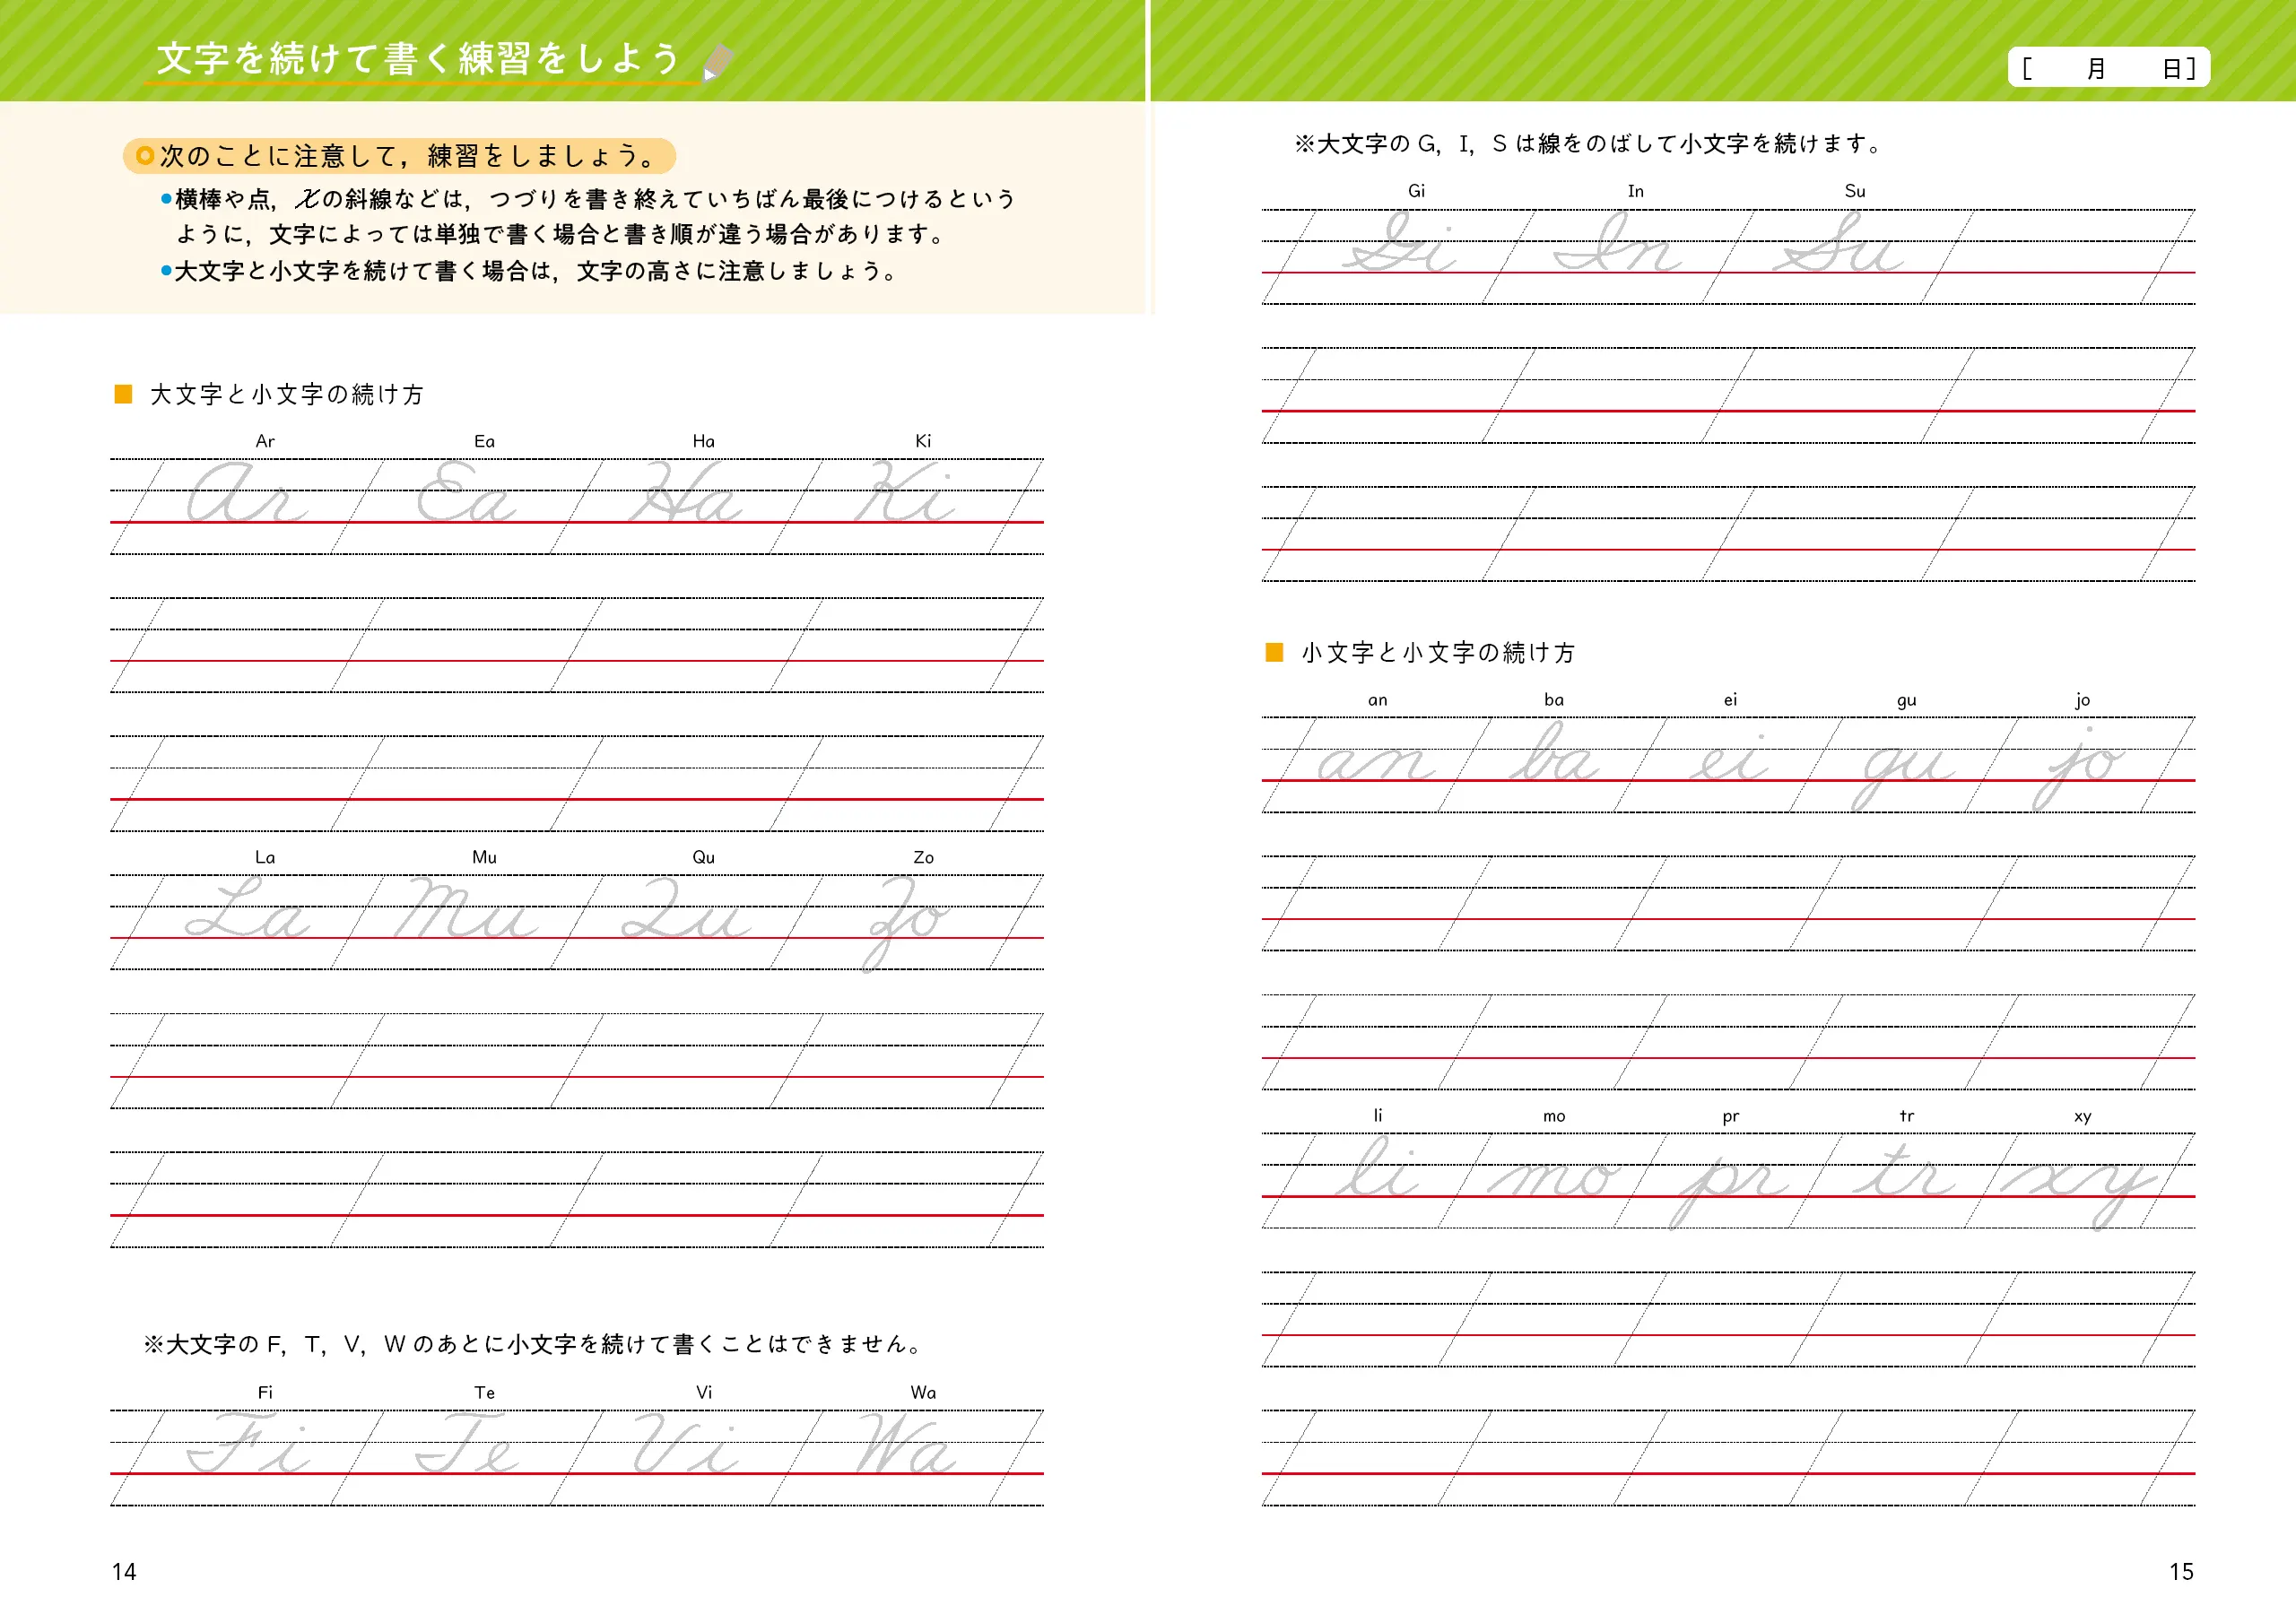 文字を続けて書く練習をしよう
次のことに注意して，練習をしましょう。
●横棒や点，xの斜線などは，つづりを書き終えていちばん最後につけるという
ように，文字によっては単独で書く場合と書き順が違う場合があります。
●大文字と小文字を続けて書く場合は，文字の高さに注意しましょう。
■ 大文字と小文字の続け方
Ar Ea Ha Ki
Ar Ea Ha Ki
La Mu Qu Zo
La Mu Qu Zo
※大文字の F，T，V，W のあとに小文字を続けて書くことはできません。
Fi Te Vi Wa
Fi Te Vi Wa
14
[ 月 日]
※大文字の G，I，S は線をのばして小文字を続けます。
Gi In Su
Gi In Su
■ 小文字と小文字の続け方
an ba ei gu jo
an ba ei gu jo
li mo pr tr xy
li mo pr tr xy
15